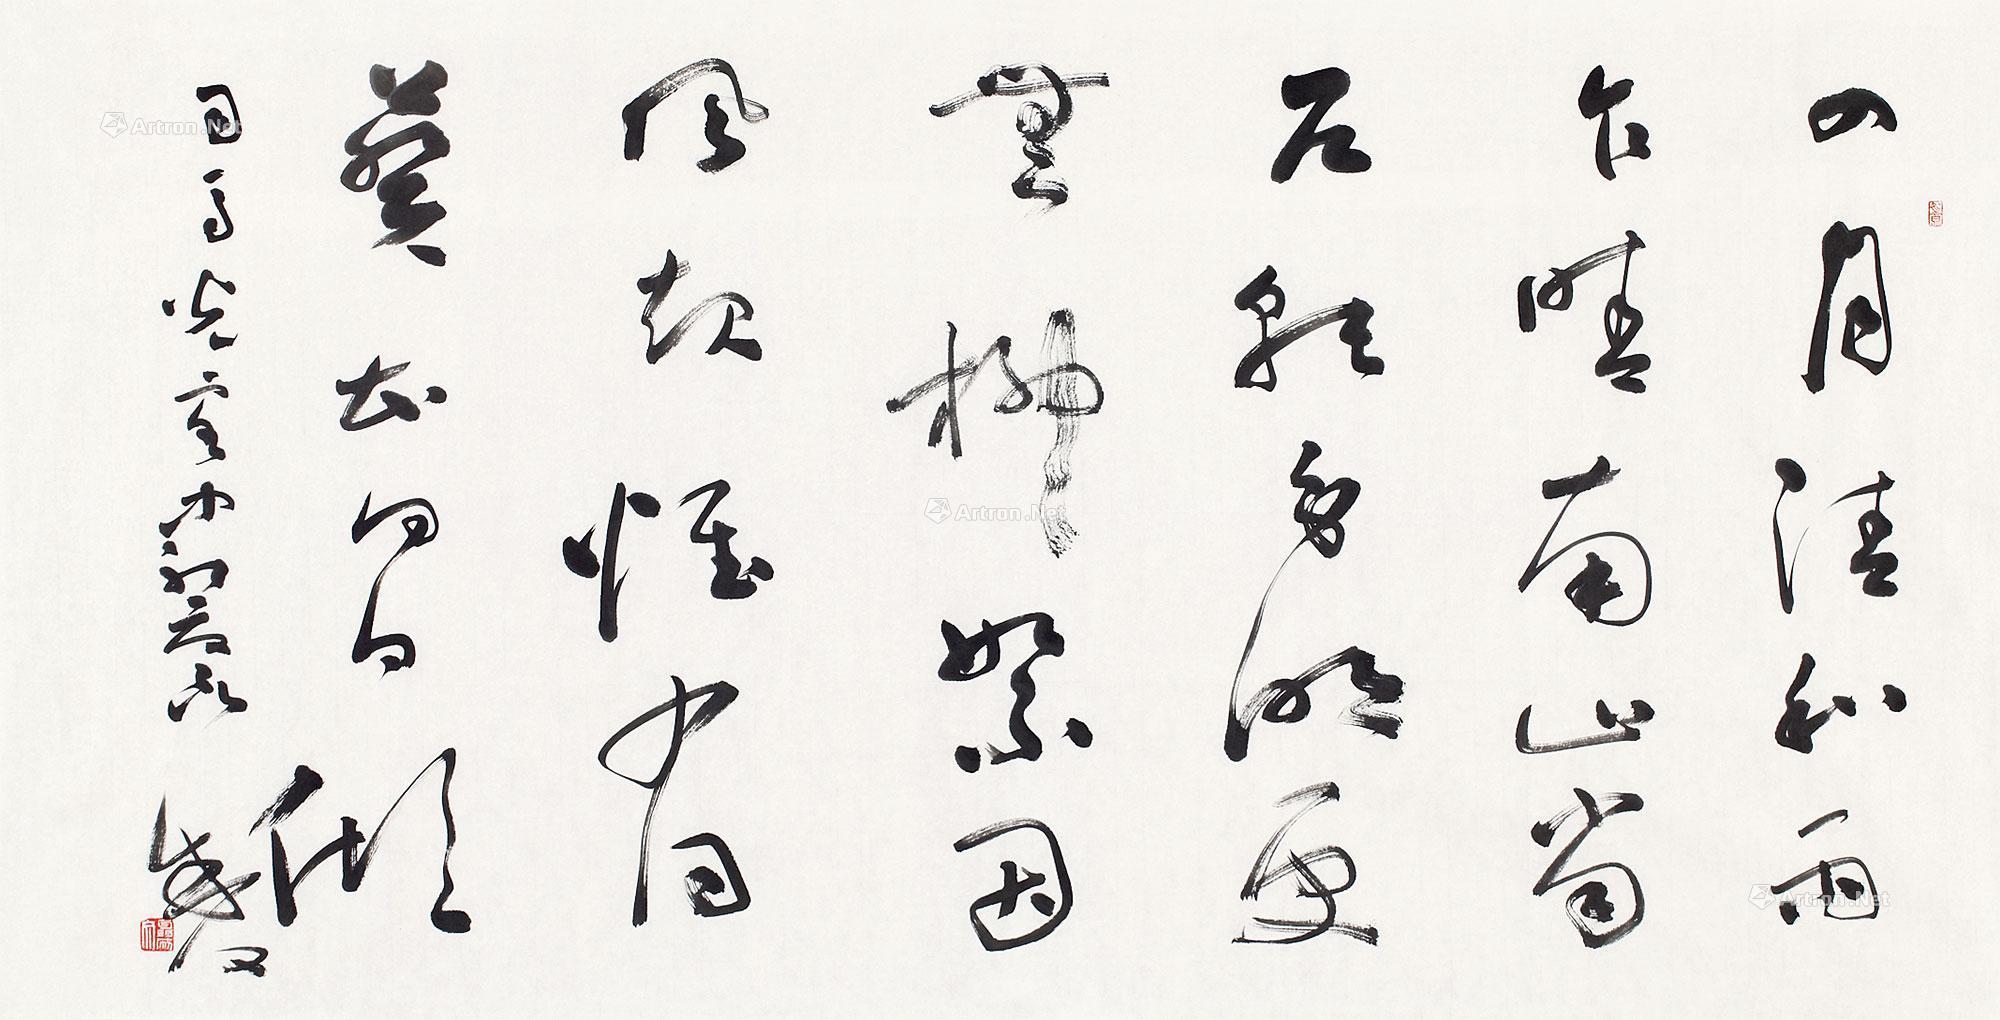 四月清和雨
乍晴南山當
戶轉分明更
無柳絮因
風起惟有
葵花向日傾
司馬光客中初夏
Artron.Net
Artron.Net
Artron.Net